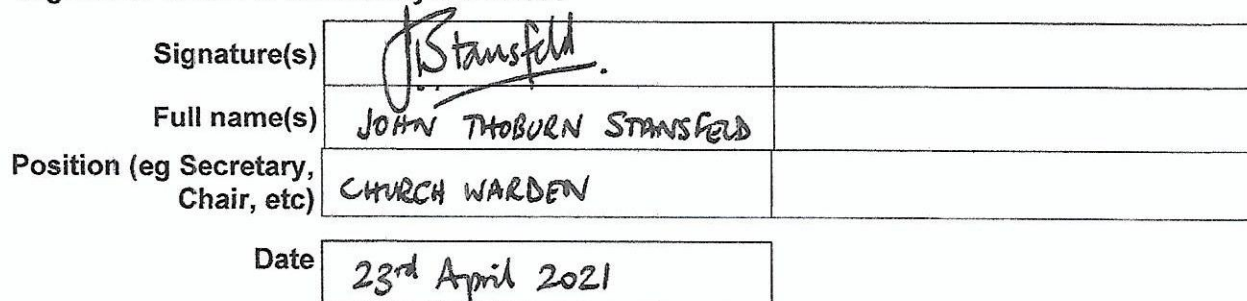 Signature(s) JStansfeld
Full name(s) JOHN THOBURN STANSFELD
Position (eg Secretary,
Chair, etc) CHURCH WARDEN
Date 23rd April 2021